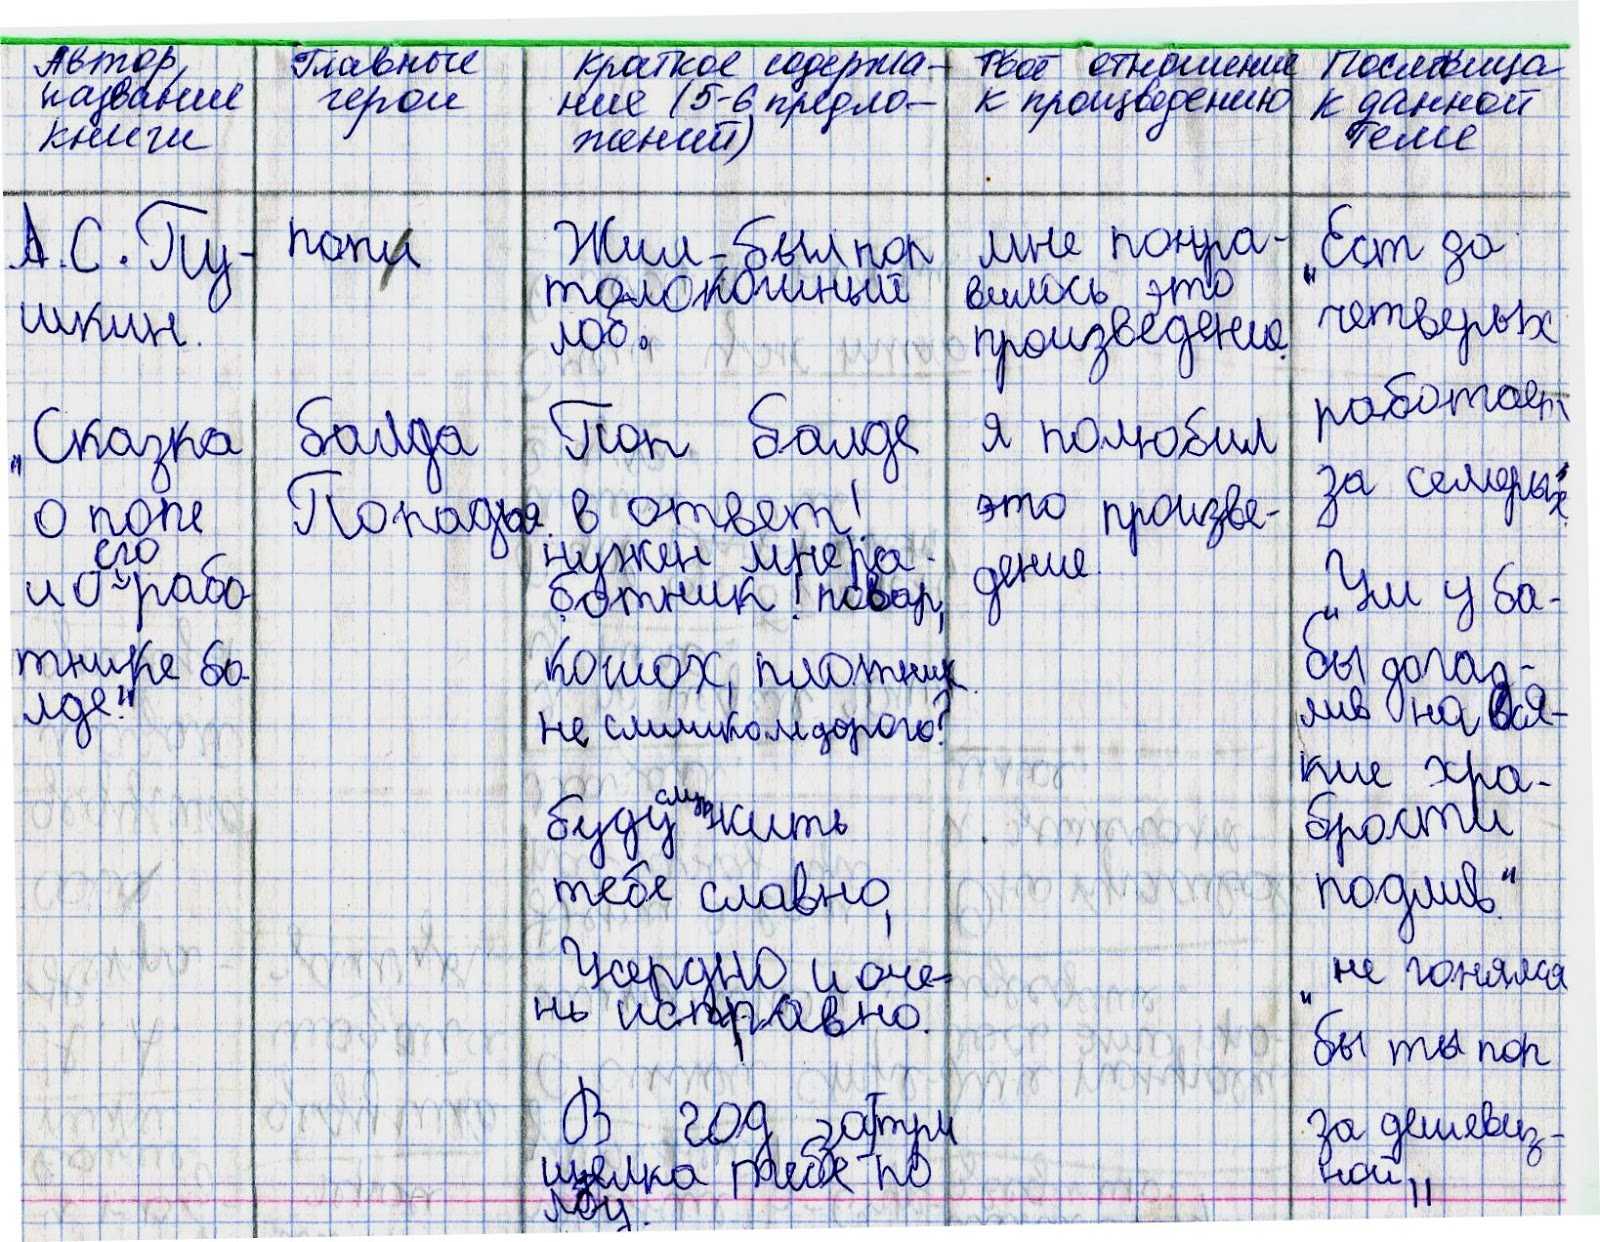 Автор,
название
книги
Главные
герои
краткое содержа-
ние (5-6 предло-
жений)
твоё отношение
к произведению
Пословица
к данной
теме
А.С. Пу-
шкин.
„Сказка
о попе
его
и рабо
тнике ба-
лде."
поп
балда
Попадья
Жил-был поп
толоконный
лоб.
Поп балде
в ответ!
нужен мне ра-
ботник! повар,
кошох, плотник.
не слишком дорого?
служ
буду жить
тебе славно,
Усердно и оче-
нь исправно.
В год за три
щелка тебе по
лбу.
мне понра-
вилось это
произведение.
я полюбил
это произве-
дение.
„Ест за
четверых
работает
за семерых"
„Ум у ба-
бы догад-
лив на вся-
кие хра-
брости
подлив"
„не гонялся
бы ты поп
за дешевиз-
ной"